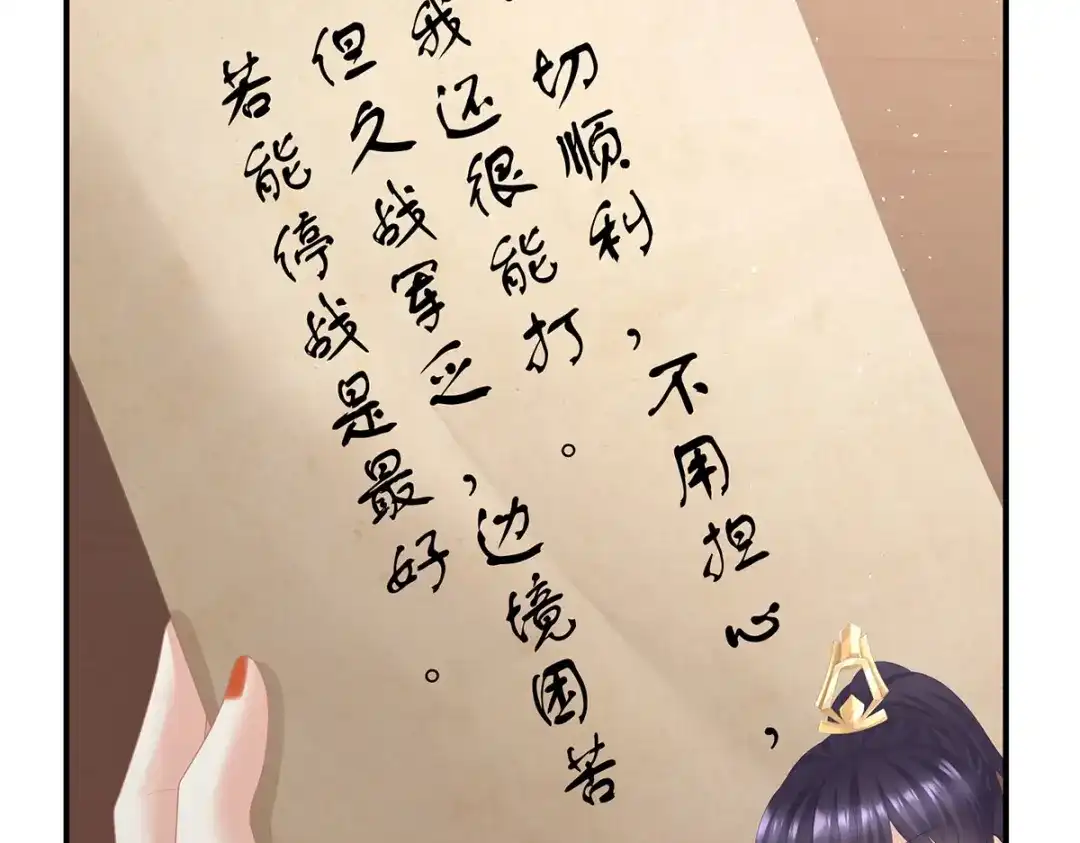 切顺利，不用担心，
我还很能打。
但久战军乏，边境困苦
若能停战是最好。